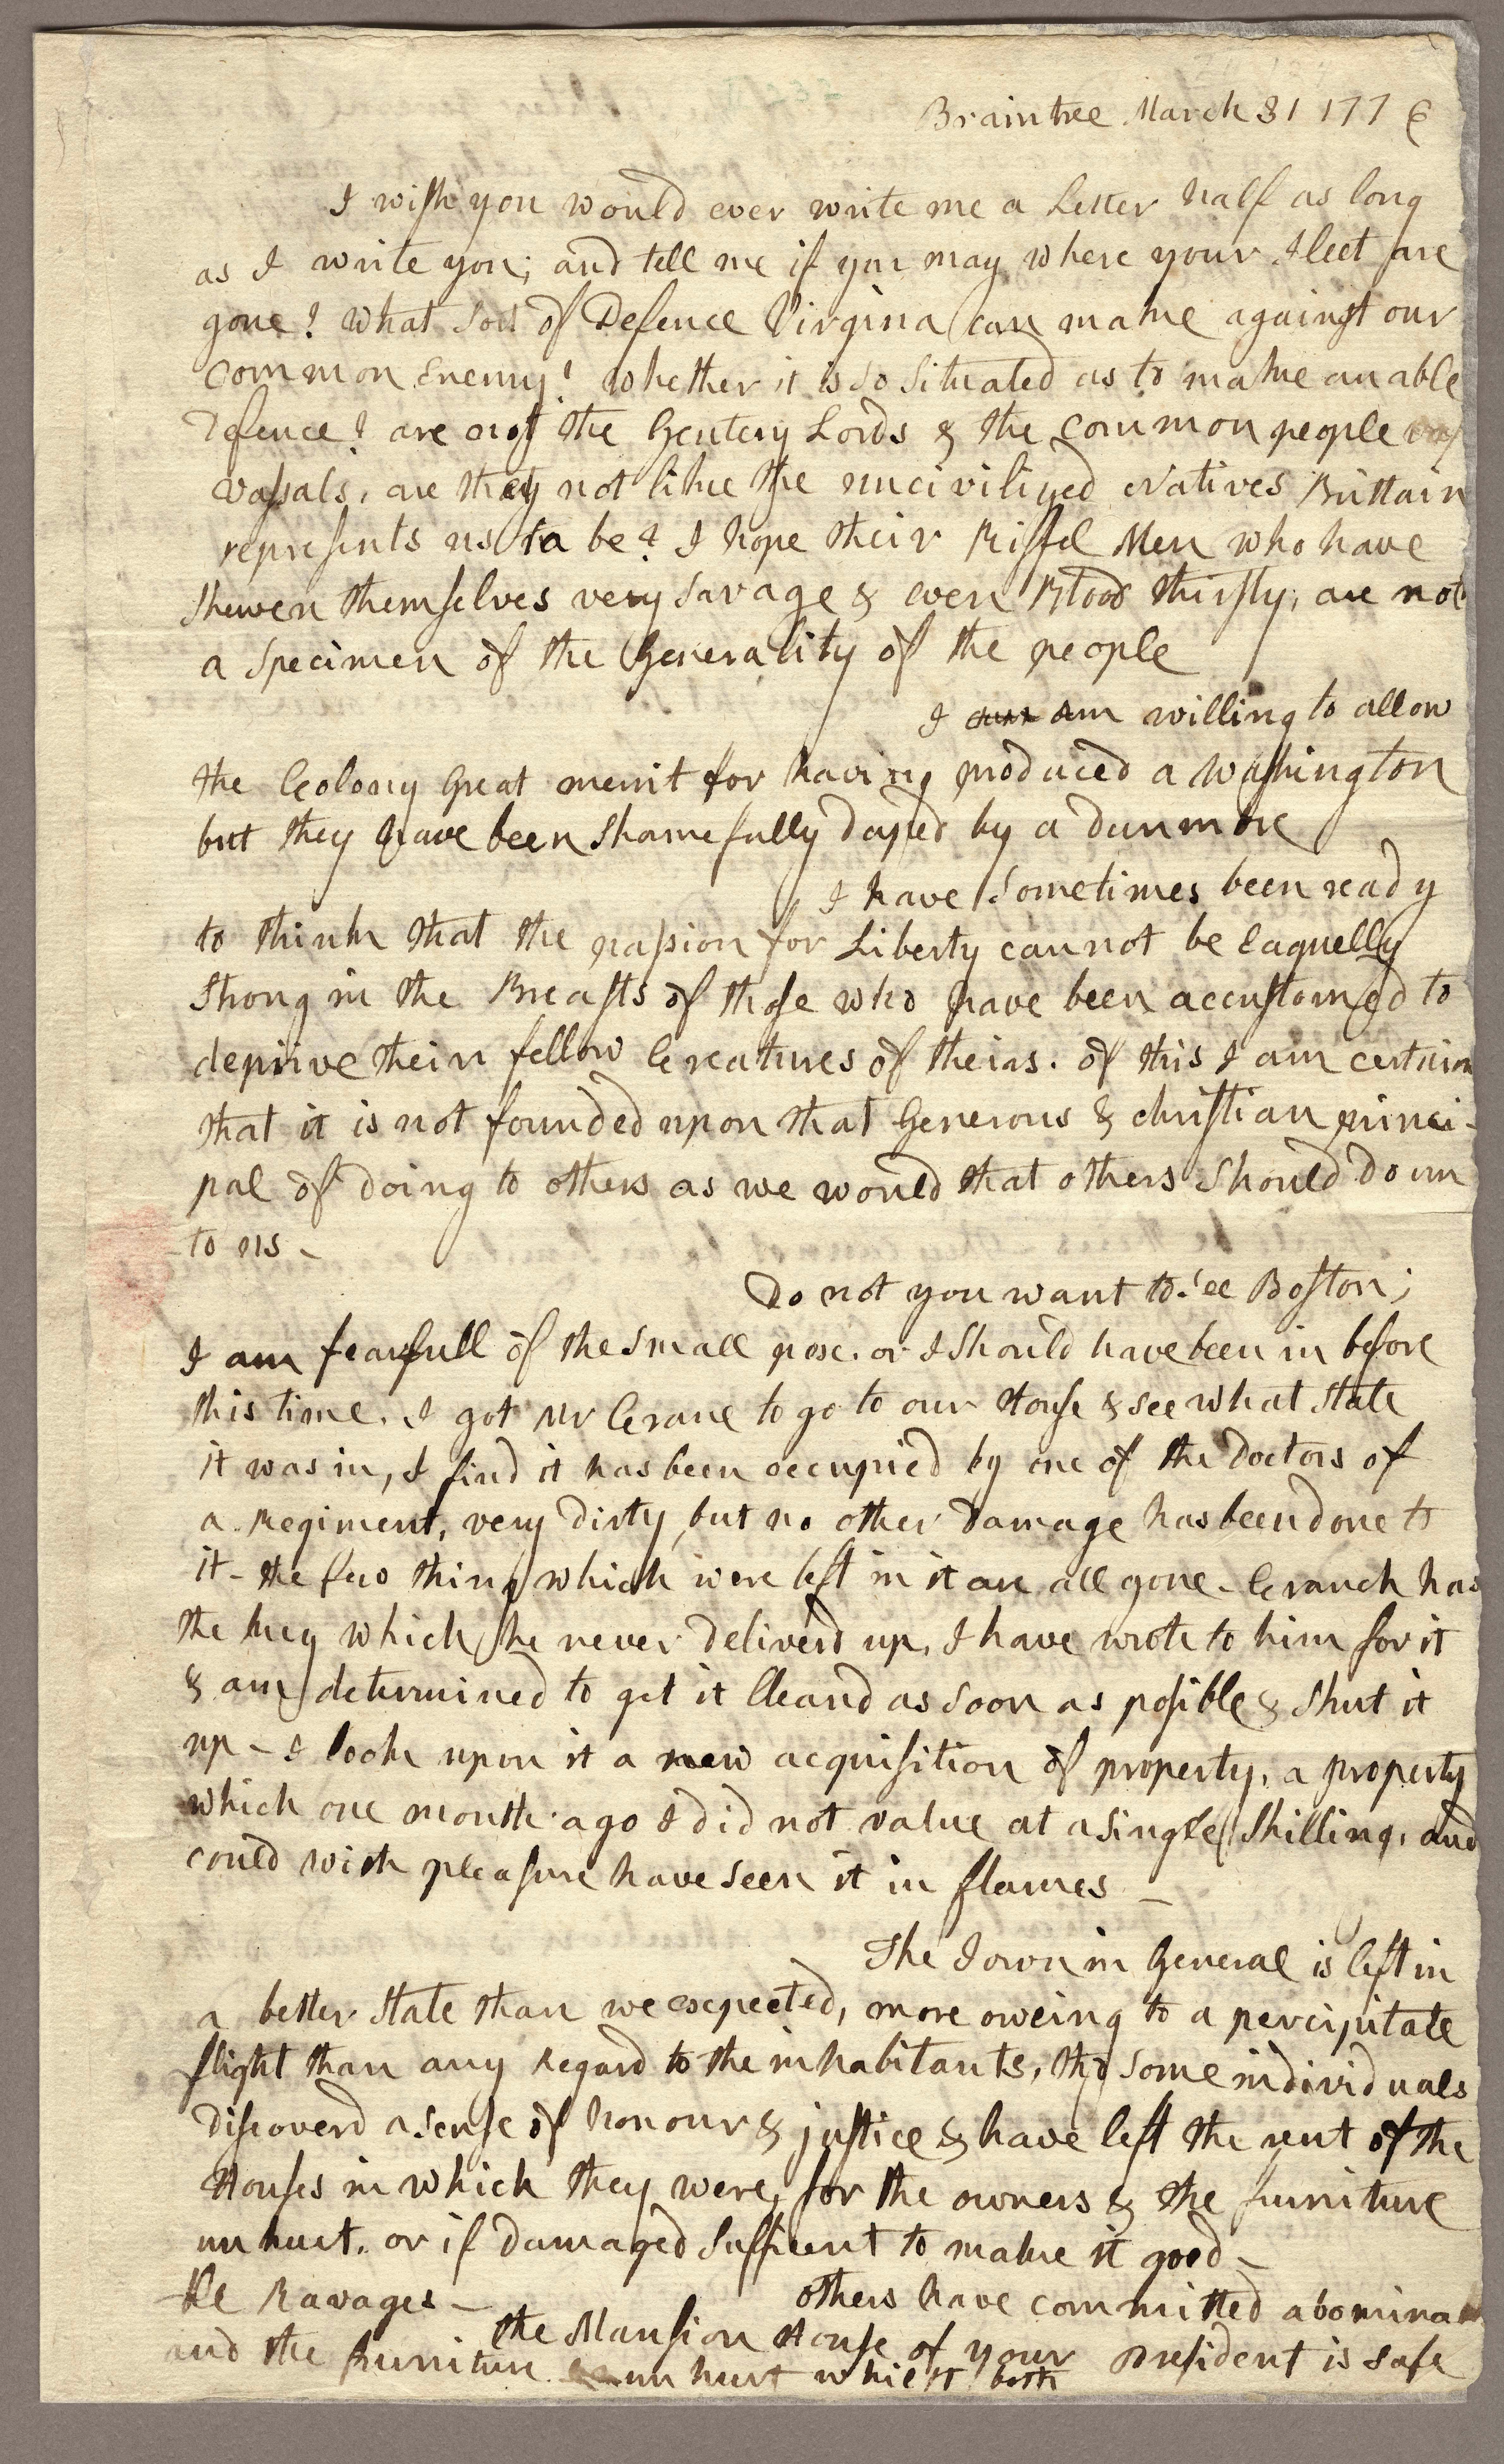 Braintree March 31 1776
I wish you would ever write me a Letter half as long
as I write you; and tell me if you may where your Fleet are
gone? What sort of Defence Virginia can make against our
common Enemy? Whether it is so situated as to make an able
Defence? are not the Gentery Lords & the common people
vassals, are they not like the uncivilized Natives Brittain
represents us to be? I hope their Riffel Men who have
shewen themselves very savage & even Blood thirsty; are not
a specimen of the Generality of the people
I am willing to allow
the Colony great merrit for having produced a Washington
but they have been shamefully duped by a Dunmore
I have sometimes been ready
to think that the passion for Liberty cannot be Eaquelly
Strong in the Breasts of those who have been accustomed to
deprive their fellow Creatures of theirs. of this I am certain
that it is not founded upon that Generous & christian princi-
pal of doing to others as we would that others should do un
to us -
Do not you want to see Boston;
I am fearfull of the small pox, or I should have been in before
this time. I got Mr Crane to go to our House & see what state
it was in, I find it has been occupied by one of the Doctors of
a Regiment, very dirty, but no other damage has been done to
it - the few things which were left in it are all gone - Cranch has
the key which he never deliverd up, I have wrote to him for it
& am determined to get it cleand as soon as posible & shut it
up - I look upon it a new acquisition of property, a property
which one month ago I did not value at a single Shilling, and
could with pleasure have seen it in flames -
The Town in General is left in
a better state than we expected, more oweing to a percipitate
flight than any Regard to the inhabitants, tho some individuals
discoverd a sense of honour & justice & have left the rent of the
Houses in which they were, for the owners & the furniture
unhurt, or if damaged sufficent to make it good -
others have committed abomina
ble Ravages -
the Mansion House of your President is safe
and the furniture unhurt whilst both